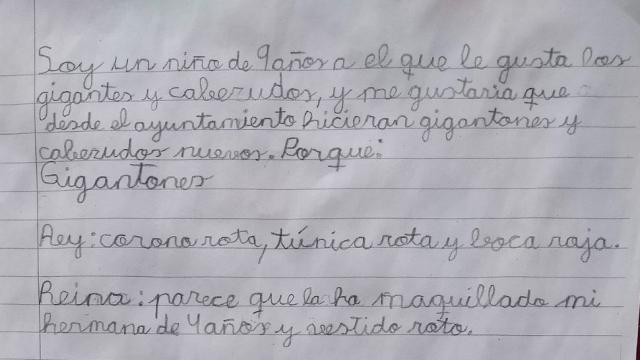 Soy un niño de 9 años a el que le gusta los
gigantes y cabezudos, y me gustaria que
desde el ayuntamiento hicieran gigantones y
cabezudos nuevos. Porque:
Gigantones
Rey: corona rota, túnica rota y boca raja.
Reina: parece que la ha maquillado mi
hermana de 4 años y vestido roto.